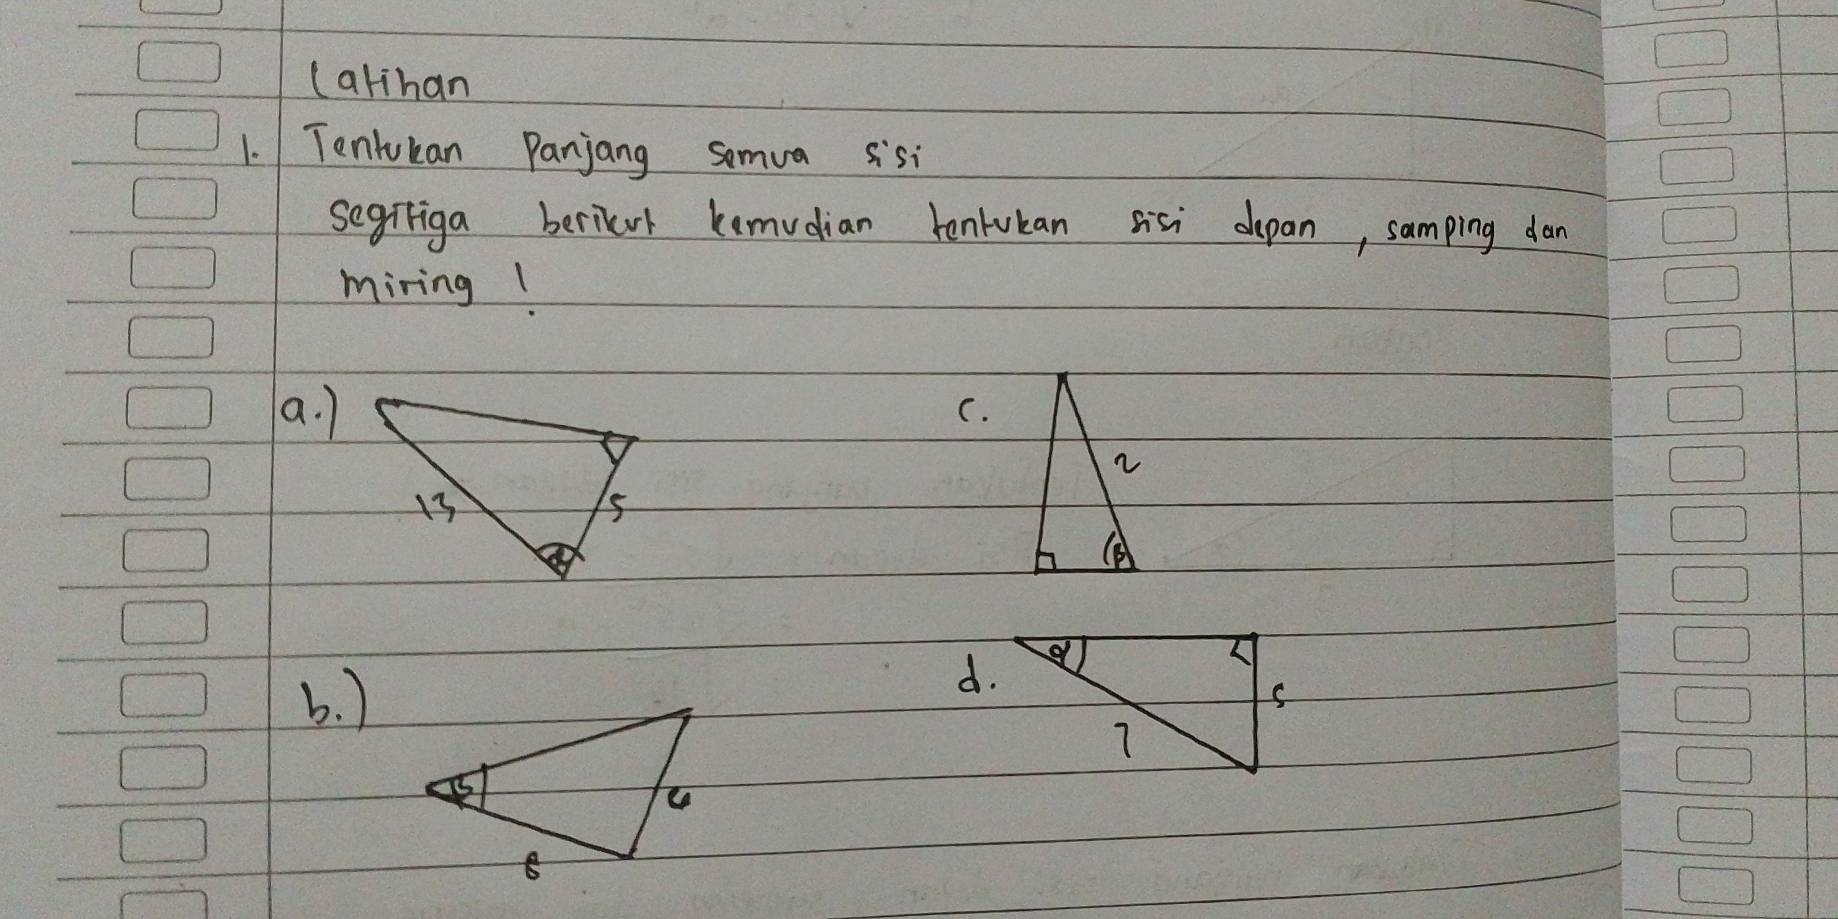 Latihan
1. Tentukan Panjang semua sisi
segitiga berikut kemudian tentukan sisi depan, samping dan
miring !
a.)
13
5
α
c.
2
β
b.)
β
6
8
d.
α
5
7